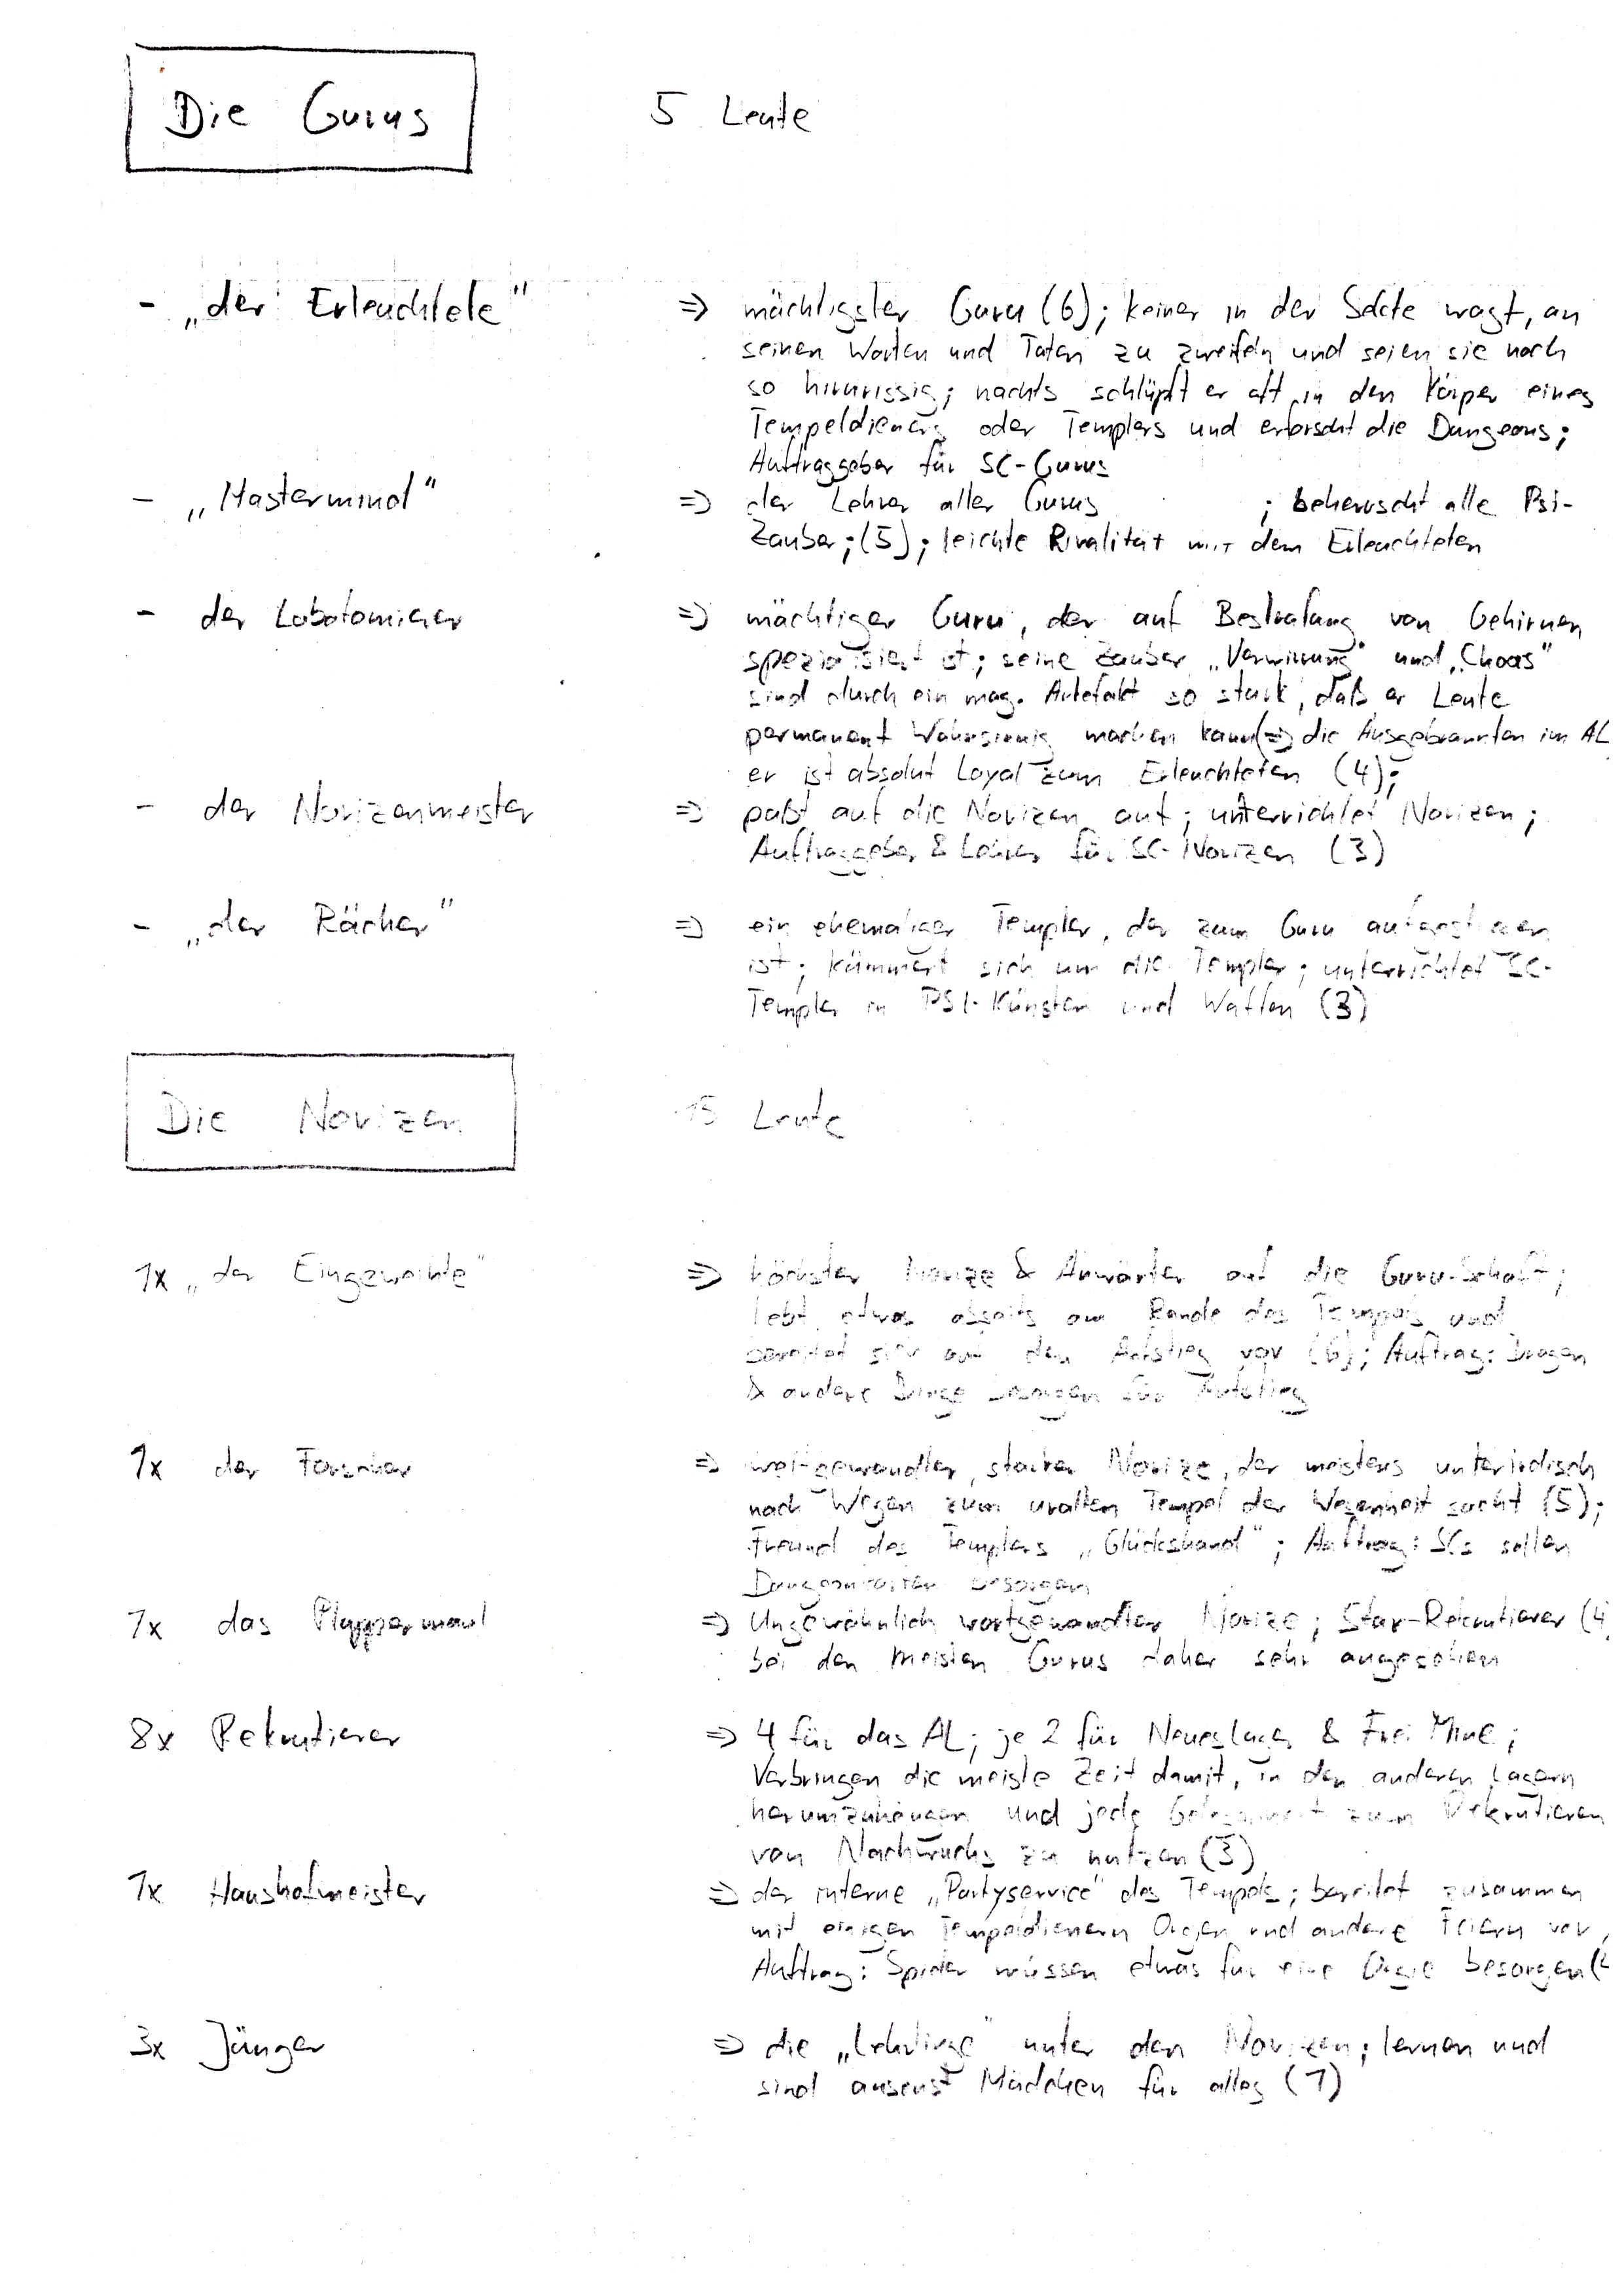 Die Gurus 5 Leute
- „der Erleuchtete" => mächtigster Guru (6); keiner in der Sekte wagt, an
seinen Worten und Taten zu zweifeln und seien sie noch
so hirnrissig; nachts schlüpft er oft in den Körper eines
Tempeldieners oder Templers und erforscht die Dungeons;
Auftraggeber für SC-Gurus
- „Mastermind" => der Lehrer aller Gurus ; beherrscht alle Psi-
Zauber; (5); leichte Rivalität mit dem Erleuchteten
- der Lobotomierer => mächtiger Guru, der auf Bestrafung von Gehirnen
spezialisiert ist; seine Zauber „Verwirrung" und „Chaos"
sind durch ein mag. Artefakt so stark, daß er Leute
permanent Wahnsinnig machen kann (=> die Ausgebrannten im AL
er ist absolut Loyal zum Erleuchteten (4);
- der Novizenmeister => paßt auf die Novizen auf; unterrichtet Novizen;
Auftraggeber & Lehrer für SC-Novizen (3)
- „der Rächer" => ein ehemaliger Templer, der zum Guru aufgestiegen
ist; kümmert sich um die Templer; unterrichtet SC-
Templer in PSI-Künsten und Waffen (3)
Die Novizen 15 Leute
1x „der Eingeweihte" => höchster Novize & Anwärter auf die Guru-Schaft;
lebt etwas abseits am Rande des Tempels und
bereitet sich auf den Aufstieg vor (6); Auftrag: Drogen
& andere Dinge besorgen für Aufstieg
1x der Forscher => weltgewandter, starker Novize, der meistens unterirdisch
nach Wegen zum uralten Tempel der Wesenheit sucht (5);
Freund des Templers „Glückshand"; Auftrag: SCs sollen
Dungeonkarten besorgen
1x das Plappermaul => Ungewöhnlich wortgewandter Novize; Star-Rekrutierer (4)
bei den meisten Gurus daher sehr angesehen
8x Rekrutierer => 4 für das AL; je 2 für Neues Lager & Freie Mine;
Verbringen die meiste Zeit damit, in den anderen Lagern
herumzuhängen und jede Gelegenheit zum Rekrutieren
von Nachwuchs zu nutzen (3)
1x Haushofmeister => der interne „Partyservice" des Tempels; bereitet zusammen
mit einigen Tempeldienern Orgien und andere Feiern vor,
Auftrag: Spieler müssen etwas für eine Orgie besorgen (
3x Jünger => die „Lehrlinge" unter den Novizen; lernen und
sind ansonst Mädchen für alles (1)